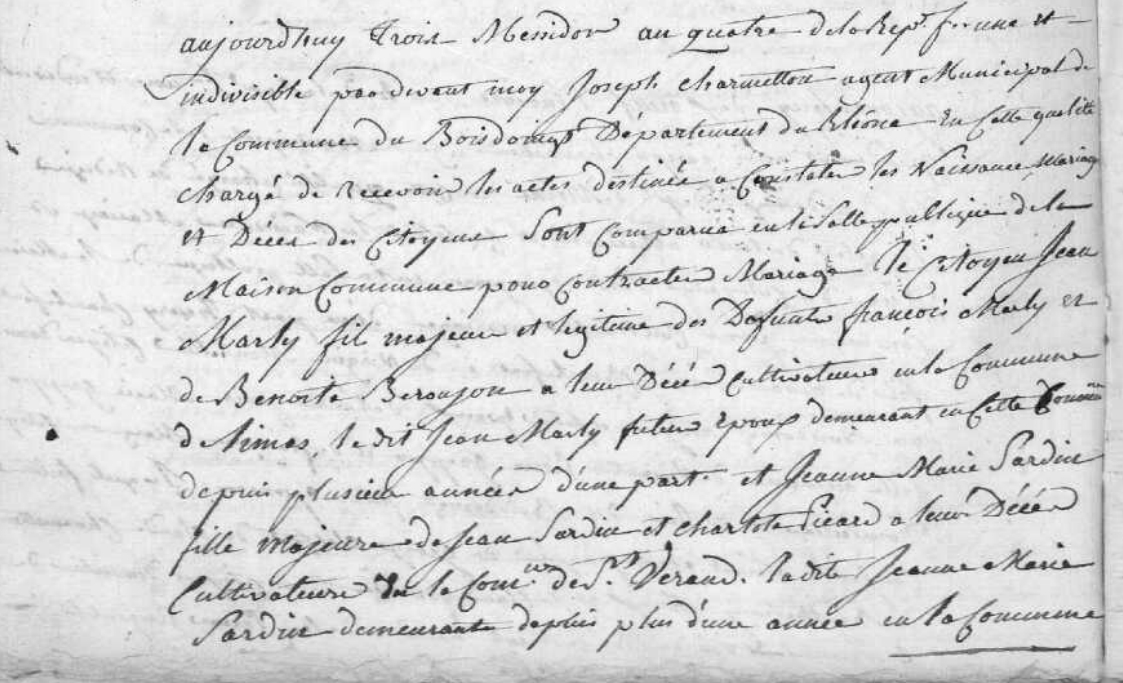 aujourdhuy Trois Messidor an quatre de la Rep.e f. une et
indivisible pardevant moy Joseph Charmetton agent Municipal de
la Commune du Boisdoingt Département du Rhone En Cette qualité
chargé de Recevoir les actes destinés a Constater les Naissance, Mariage
et Décés des Citoyens Sont Comparus en la Salle publique de la
Maison Commune pour Contracter Mariage le Citoyen Jean
Marly fil majeur et legitime des Defunts françois Marly et
de Benoite Beroujon a leur Décés Cultivateurs en la Commune
de Simas, le dit Jean Marly futur Epoux demeurant en Cette Commune
depuis plusieur années d'une part. et Jeanne Marie Sardin
fille majeure de Jean Sardin et Charlote Picard a leur Décés
Cultivateurs de la Com.ne de St Verand. ladite Jeanne Marie
Sardin demeurante depuis plus d'une année en la Commune